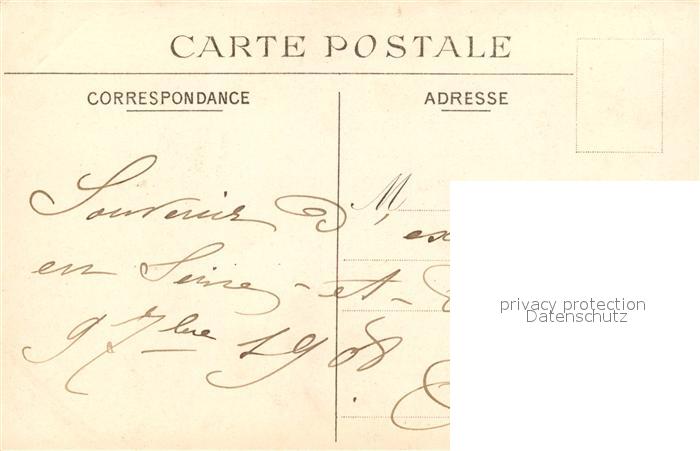 CARTE POSTALE
CORRESPONDANCE
ADRESSE
M
Souvenir d' ex
en Seine-et-
9 7bre 1908
privacy protection
Datenschutz